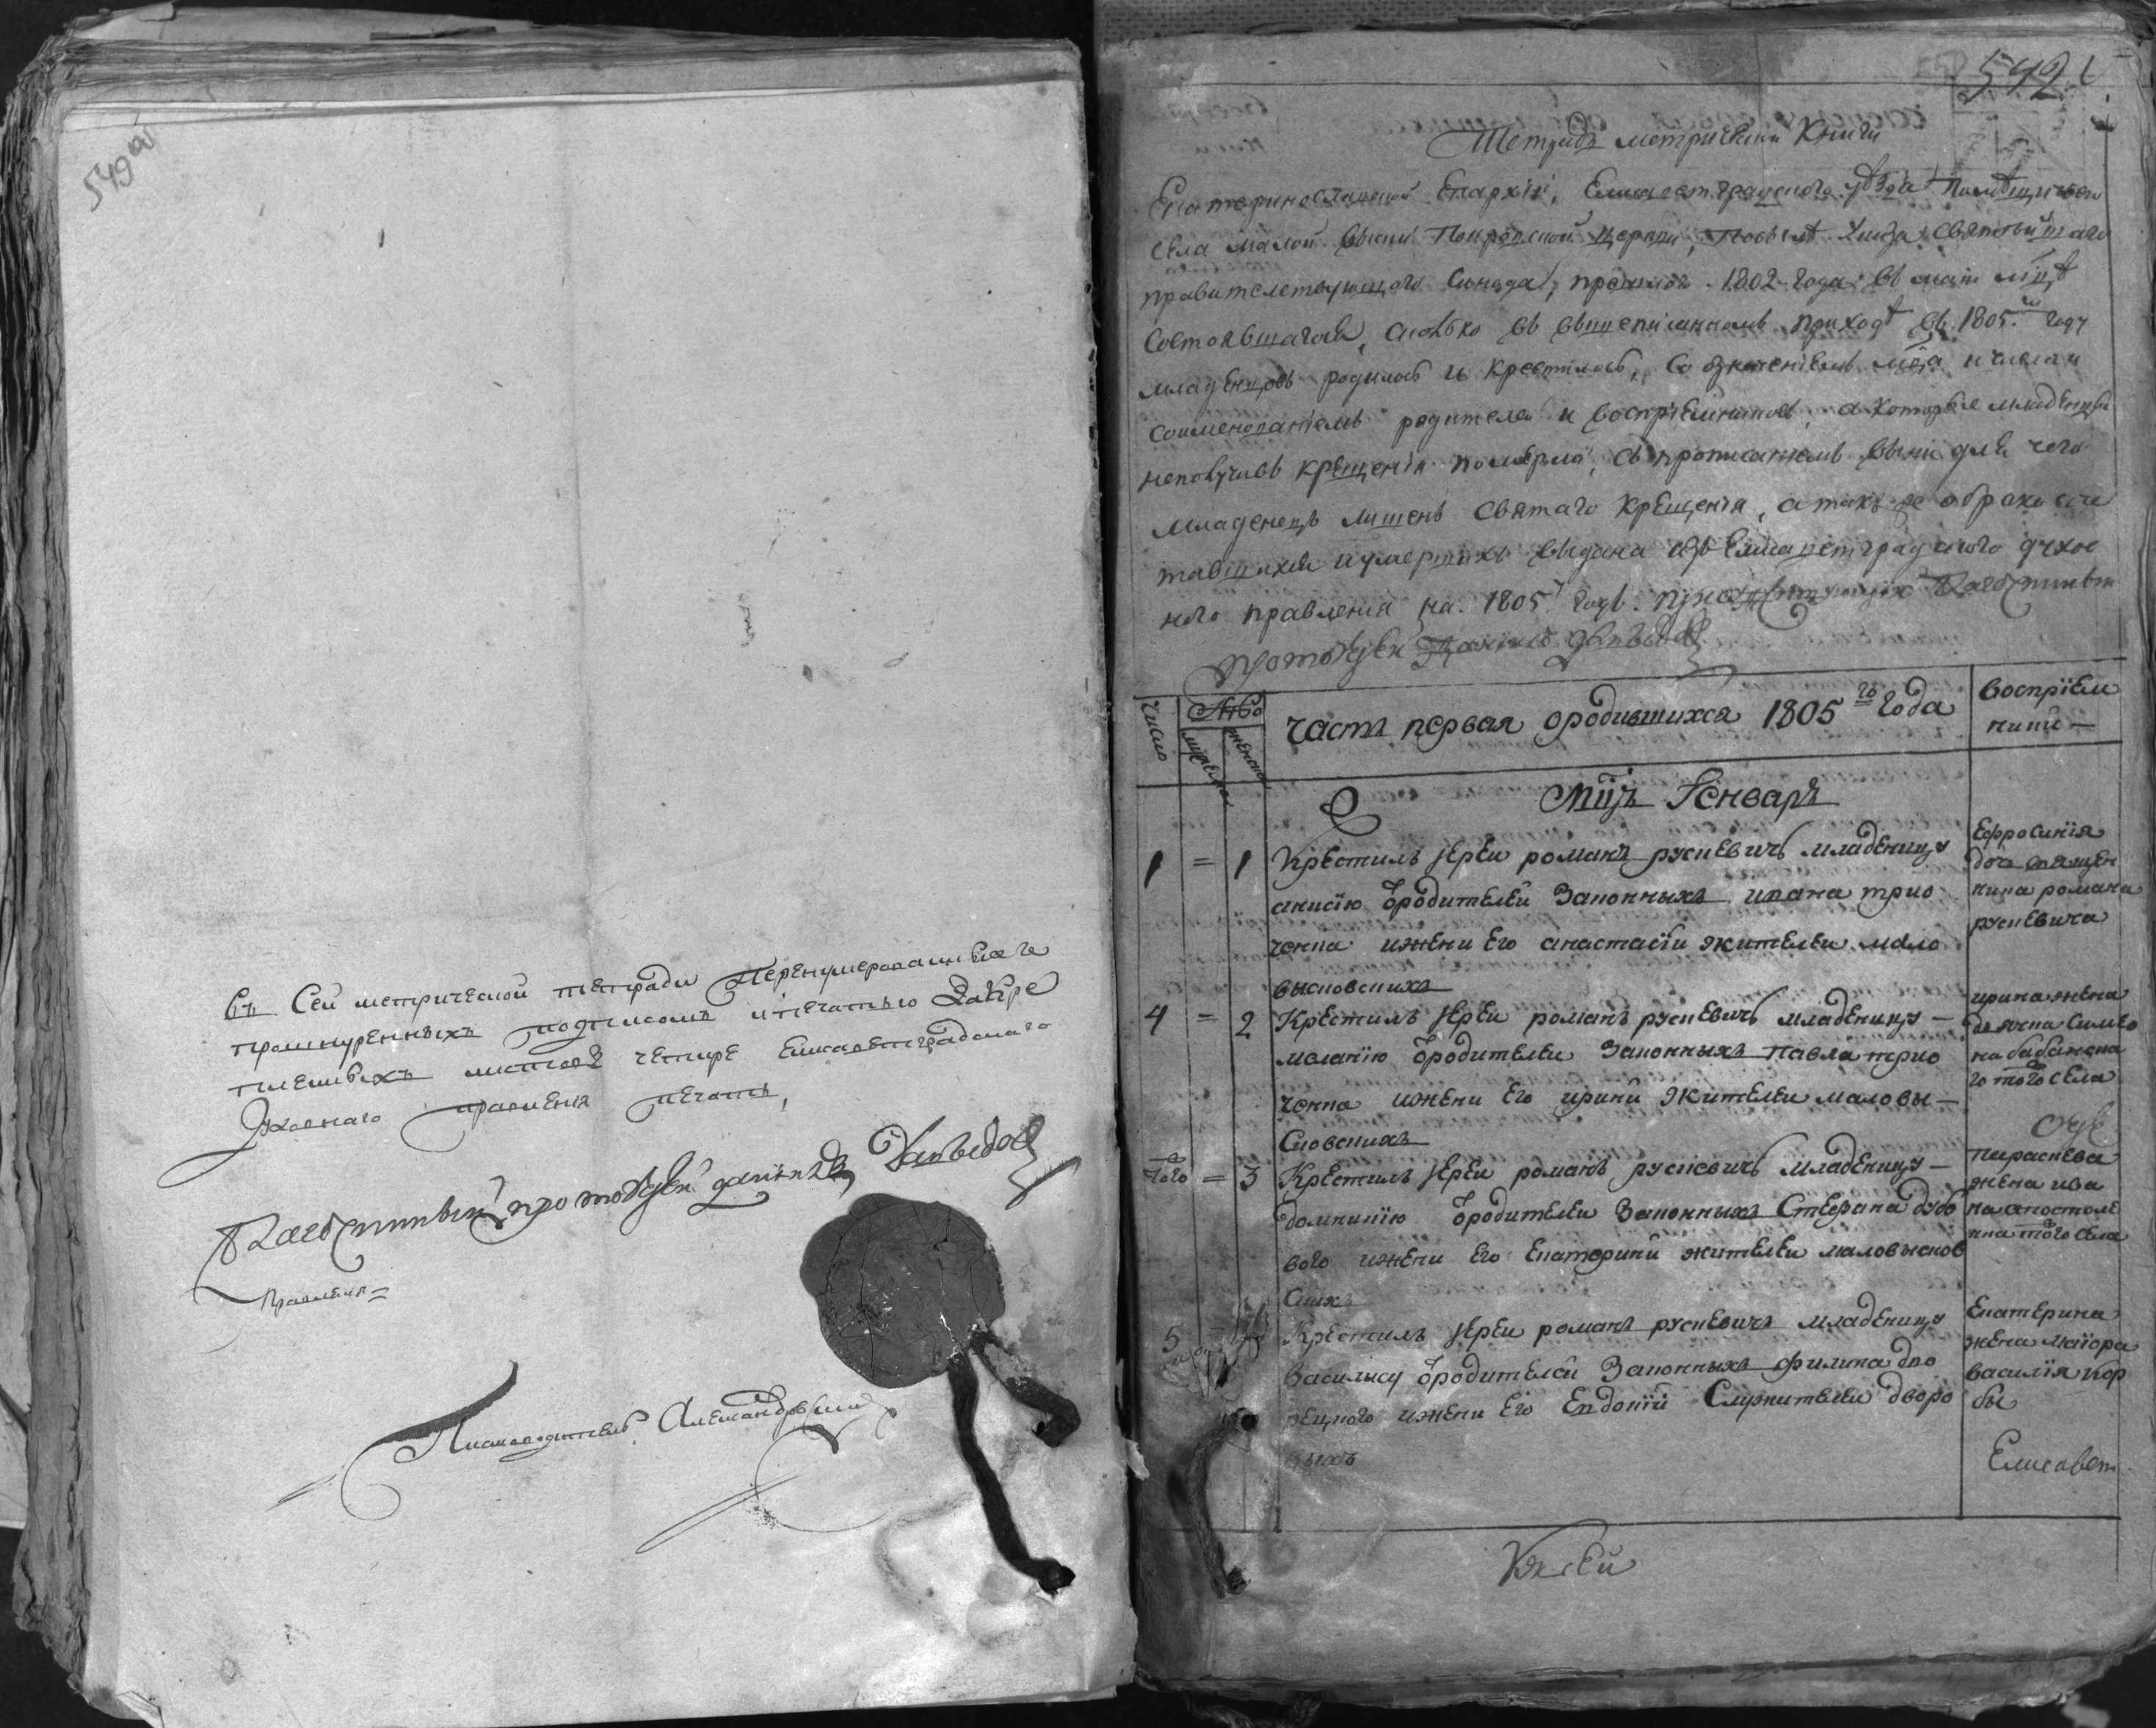 549 об
Въ Сей метрической тетради Перенумерованныхъ
прошнуренныхъ подписомъ ипечатью Закре
пленныхъ листовъ четыре Елисаветградскаго
Духовнаго правленія печать,
Благочинный протоіерей даніилъ
Правленія =
Писмоводитель Александровский
542
Тетрадь метрической Книги
Екатеринославской Епархіи, Елисаветградского уѣзда Помѣщичьего
села малой Выски Покровской Церкви, Посилѣ Указа Святейшаго
правителствующого Синода, прошлого 1802 года въ маіи мцѣ
Состоявшагося, сколко въ вышеписанномъ приходѣ въ 1805.м году
младенцовъ родилось и крестилось, со означеніемъ мца и числа и
соименованіемъ родителей и воспріемниковъ, а которые младенцы
неполучивъ крещенія померло, съ прописаніемъ вины для чего
младенецъ лишенъ Святаго Крещенія, атакъже обракосоче
тавшихся иумершихъ выдана изъ Елисаветградского духов
ного правленія на 1805 годъ. присудствующій Благочинный
протоіерей Даніилъ
число
мужеска
женска
часть первая ородившихся 1805го года
воспріем
ники —
Мцъ Генварь
1 = 1 Крестилъ іерей романъ русневичъ младеницу
анисію ѿродителей Законныхъ ивана трио
ченка ижени его анастасіи жителей мало
висковскихъ
Ефросинія
дочь священ
ника романа
русневича
4 = 2 Крестилъ іерей романъ русневичъ младеницу —
меланію ѿродителей Законныхъ павла трио
ченка ижени его ирини жителей маловы —
сковскихъ
ирина жена
дьячка Симео
на бабанска
го того села
того = 3 Крестилъ іерей романъ русневичъ младеницу —
домникію ѿродителей Законныхъ Стефана дубо
вого ижени его Екатерини жителей маловысков
скихъ
параскева
жена ива
на апостоле
нка того села
5 Крестилъ іерей романъ русневичъ младеницу
Василису ѿродителей Законныхъ филипа дво
рецкого ижени его Евдокіи Служителей дворо
выхъ
Екатерина
жена маіора
василія кор
бы
Елисавет